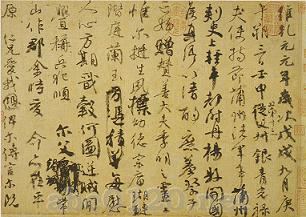 維乾元元年歲次戊戌九月庚
午朔三日壬申從父銀青光祿
夫使持節蒲州諸軍事蒲州
刺史上輕車都尉丹楊縣開國
侯真卿以清酌庶羞祭于
亡姪贈贊善大夫季明之靈曰
惟爾挺生夙標幼德宗廟瑚璉
階庭蘭玉每慰
人心方期戩穀何圖逆賊間
釁稱兵犯順
爾父竭誠常
山作郡余時受命亦在平
原仁兄愛我俾爾傳言爾既